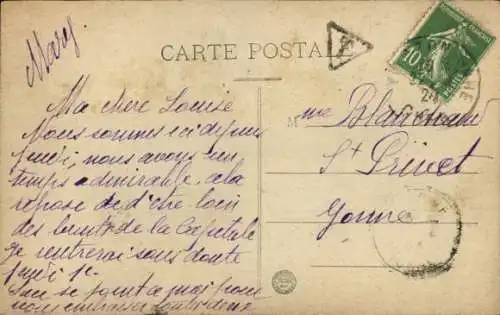 Mary
CARTE POSTALE
Ma chere Louise
Nous sommes ici depuis
jeudi, nous avons un
temps admirable, cela
repose d'être loin
des bruits de la Capitale
je rentrerai sans doute
jeudi
se joint a moi pour
vous embrasser
Mme
St Privet
Yonne
10
POSTES